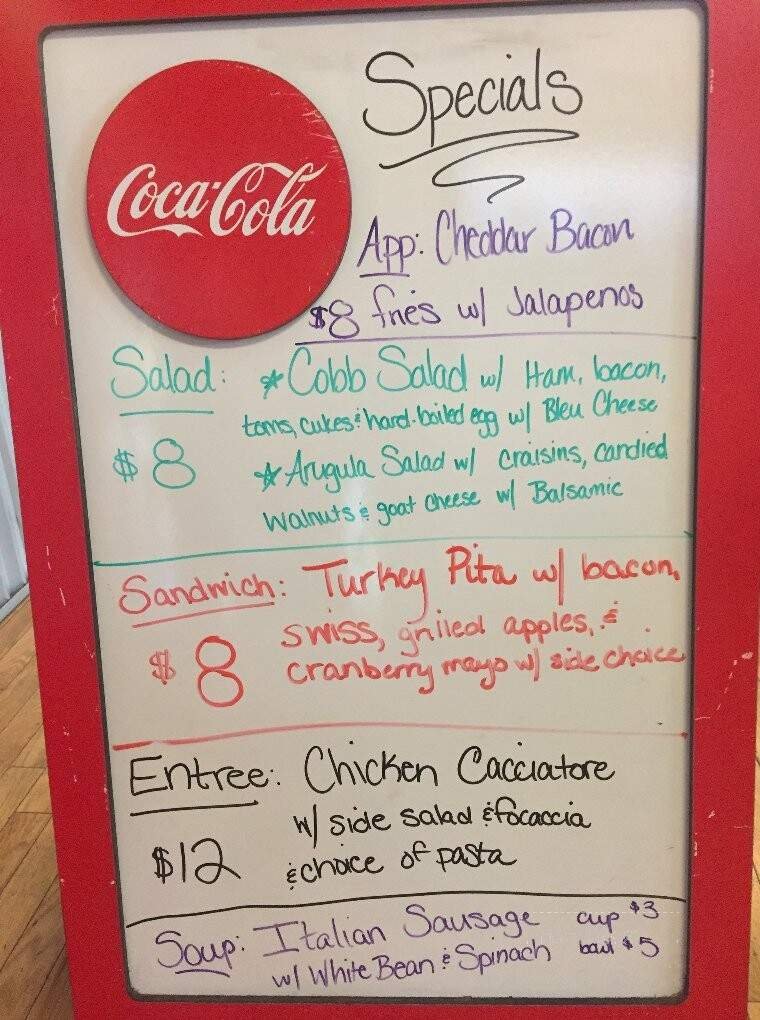 Coca-Cola
Specials
App: Cheddar Bacon
$8 fries w/ Jalapenos
Salad: * Cobb Salad w/ Ham, bacon,
toms, cukes & hard-boiled egg w/ Bleu Cheese
$8 * Arugula Salad w/ craisins, candied
walnuts & goat cheese w/ Balsamic
Sandwich: Turkey Pita w/ bacon,
$8 swiss, grilled apples, &
cranberry mayo w/ side choice
Entree: Chicken Cacciatore
w/ side salad & focaccia
$12 & choice of pasta
Soup: Italian Sausage cup $3
w/ White Bean & Spinach bowl $5